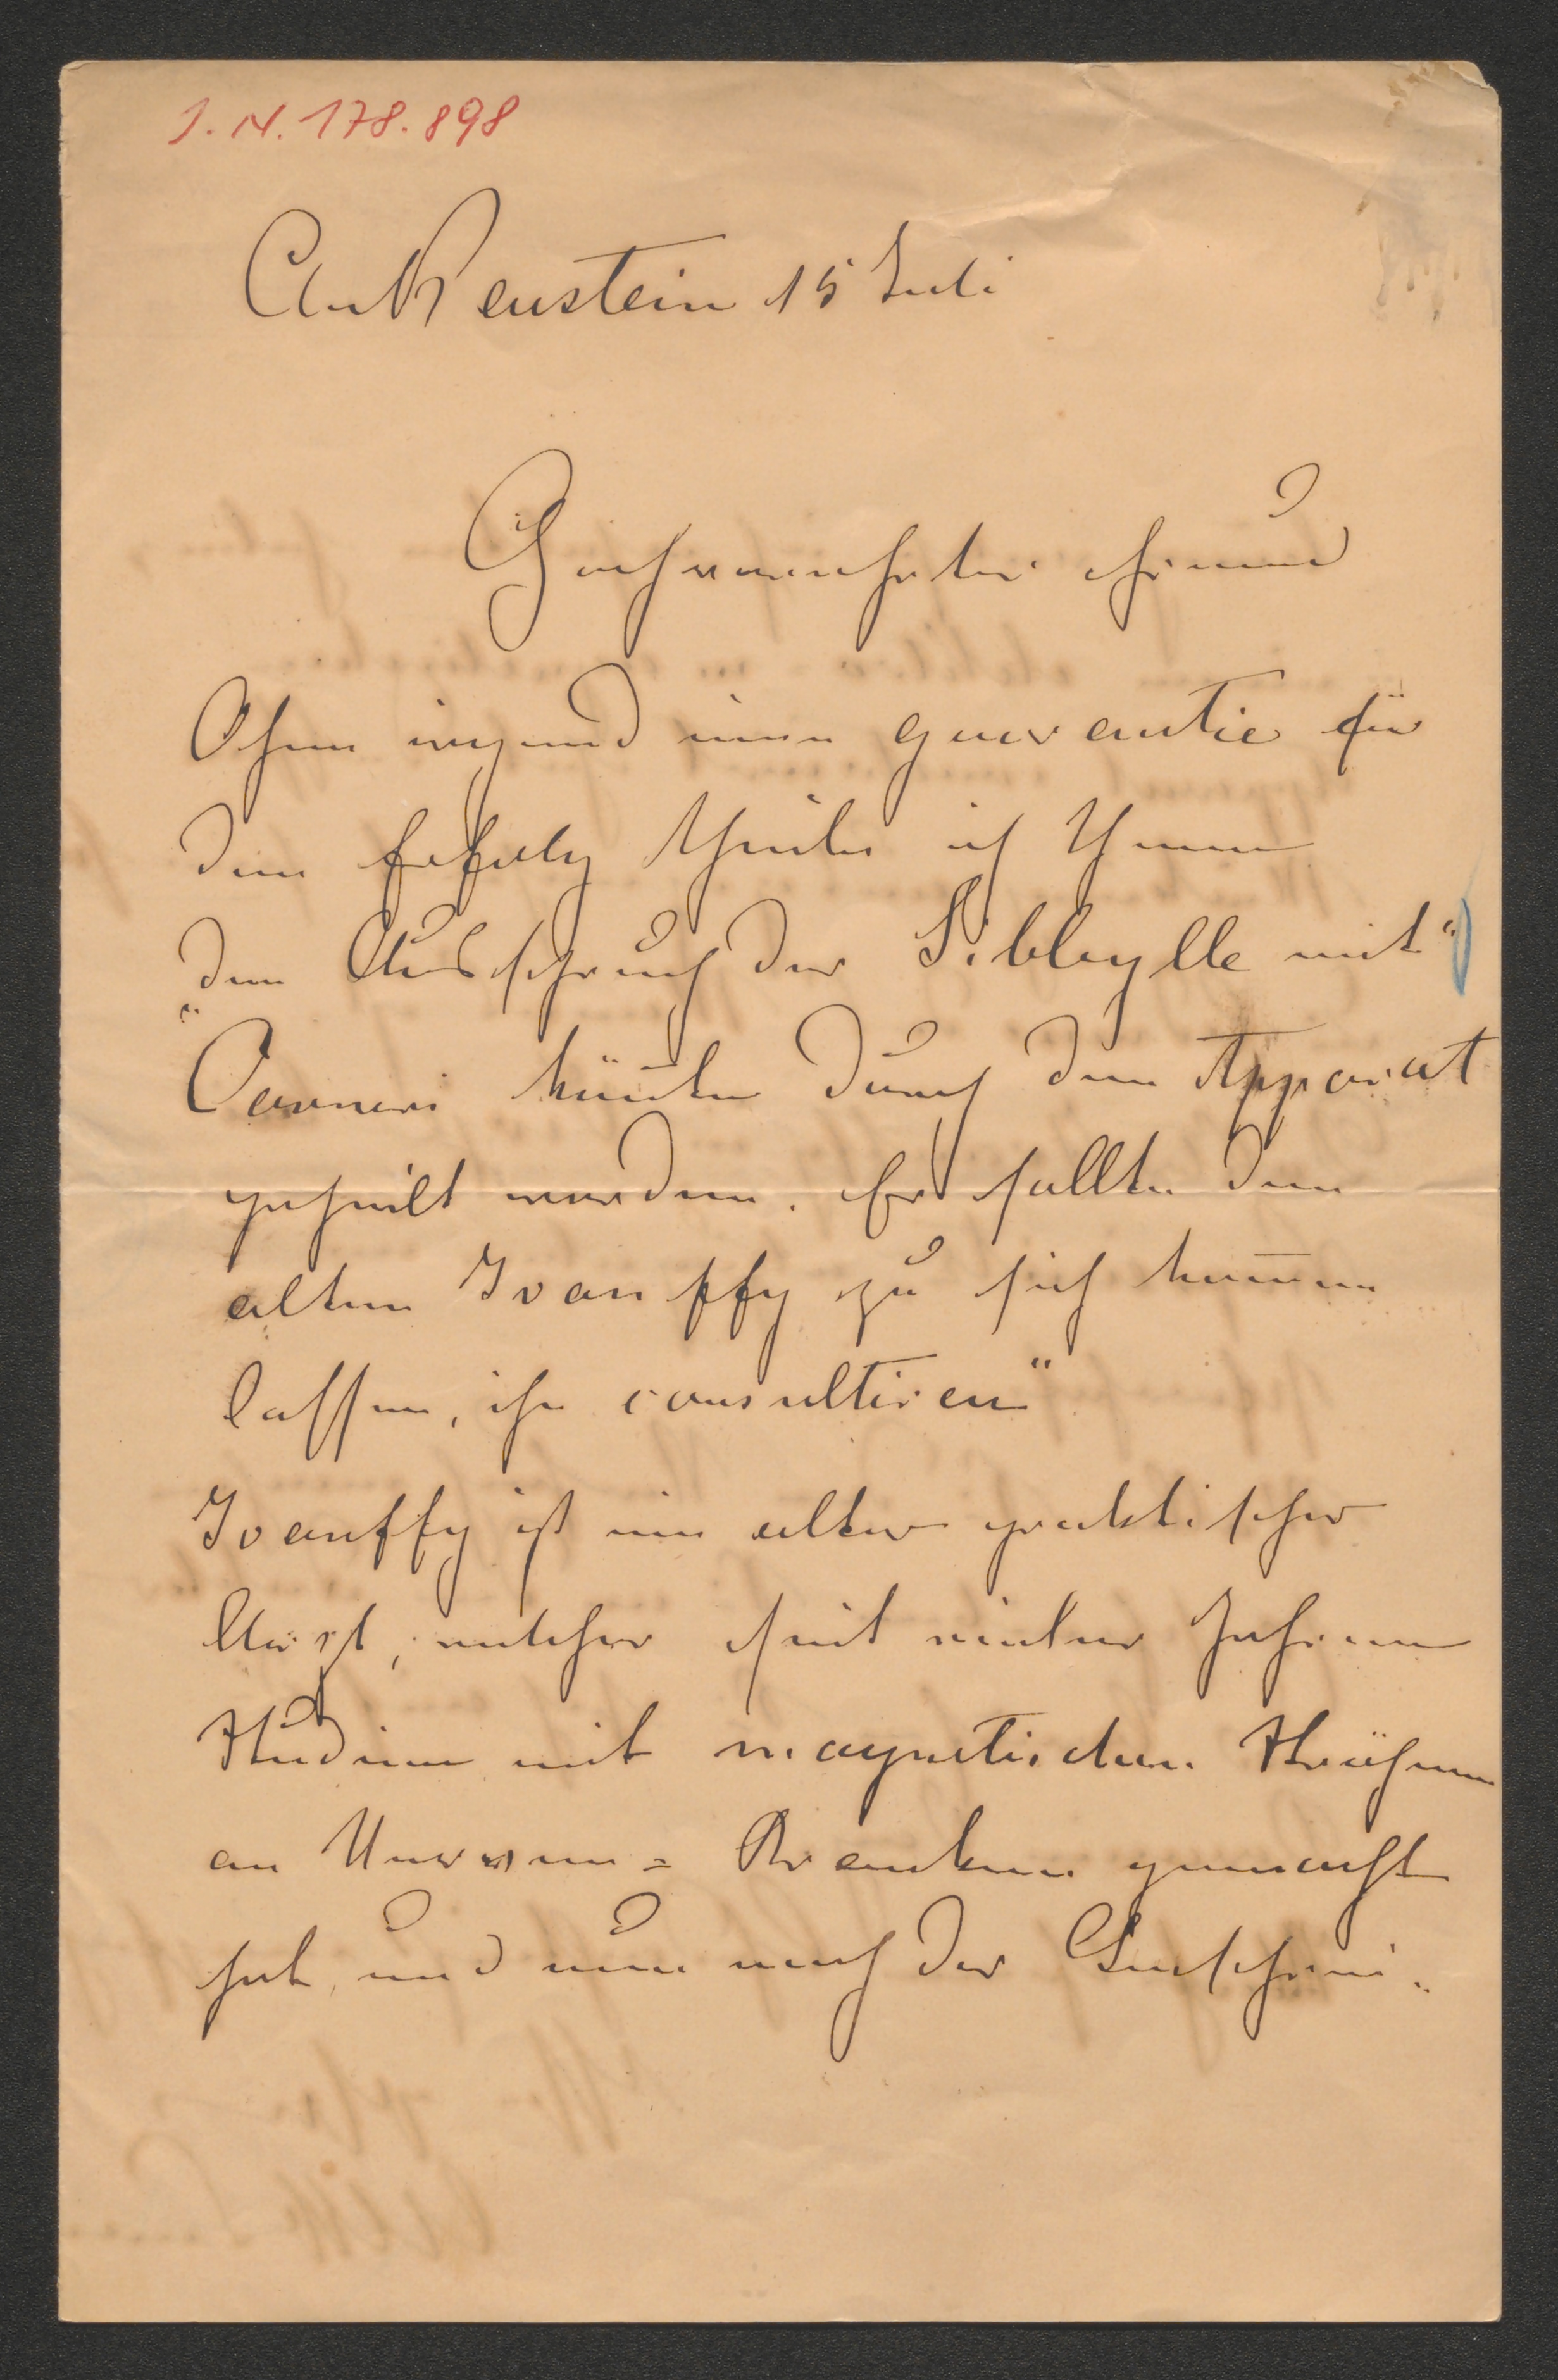 J. N. 178.898
Ankenstein 15 Juli
Hochverehrter Freund
Ohne irgend eine guarantie für
den Erfolg theile ich Ihnen
den Ausspruch der Sibbylle mit
"Carneri könnte durch den Apparat
geheilt werden. Er sollte den
alten Ivanffy zu sich kommen
lassen, ihn consultiren"
Ivanffy ist ein alter praktischer
Arzt, welcher seit vielen Jahren
Studien mit magnetischen Ströhmen
an Nerven-Kranken gemacht
hat, und nun nach der